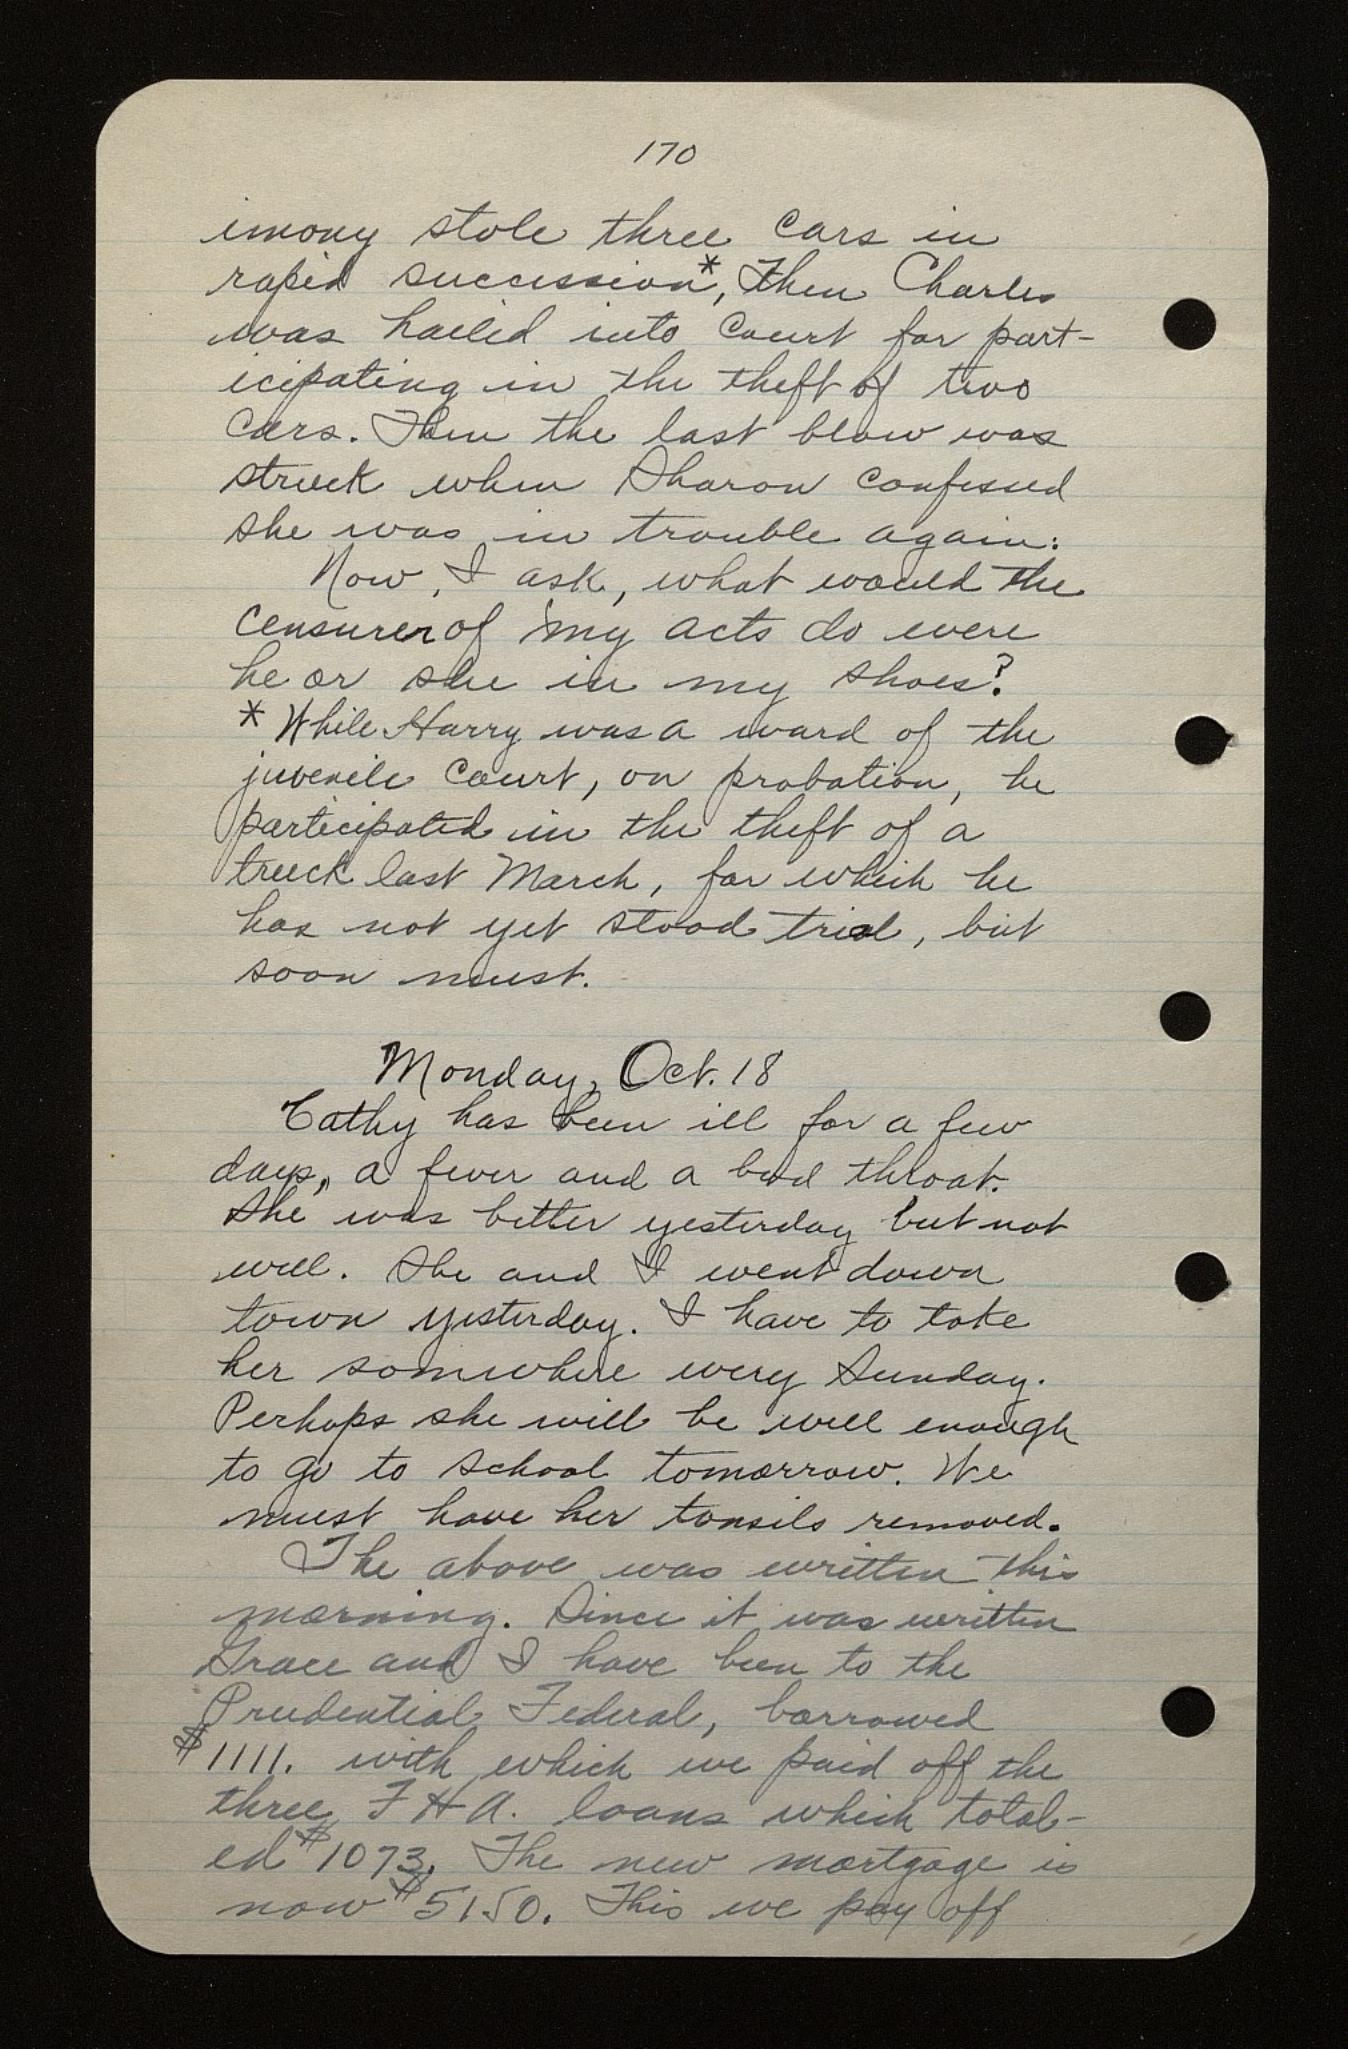 170
imony stole three cars in
rapid succession*, Then Charles
was hailed into court for part-
icipating in the theft of two
cars. Then the last blow was
struck when Sharon confessed
she was in trouble again.
Now, I ask, what would the
censurer of my acts do were
he or she in my shoes?
* While Harry was a ward of the
juvenile court, on probation, he
participated in the theft of a
truck last March, for which he
has not yet stood trial, but
soon must.
Monday, Oct. 18
Cathy has been ill for a few
days, a fever and a bad throat.
She was better yesterday but not
well. She and I went down
town yesterday. I have to take
her somwhere every Sunday.
Perhaps she will be well enough
to go to school tomorrow. We
must have her tonsils removed.
The above was written this
morning. Since it was written
Grace and I have been to the
Prudential Federal, borrowed
$1111. with which we paid off the
three F H A. loans which total-
ed $1073. The new mortgage is
now $5150. This we pay off